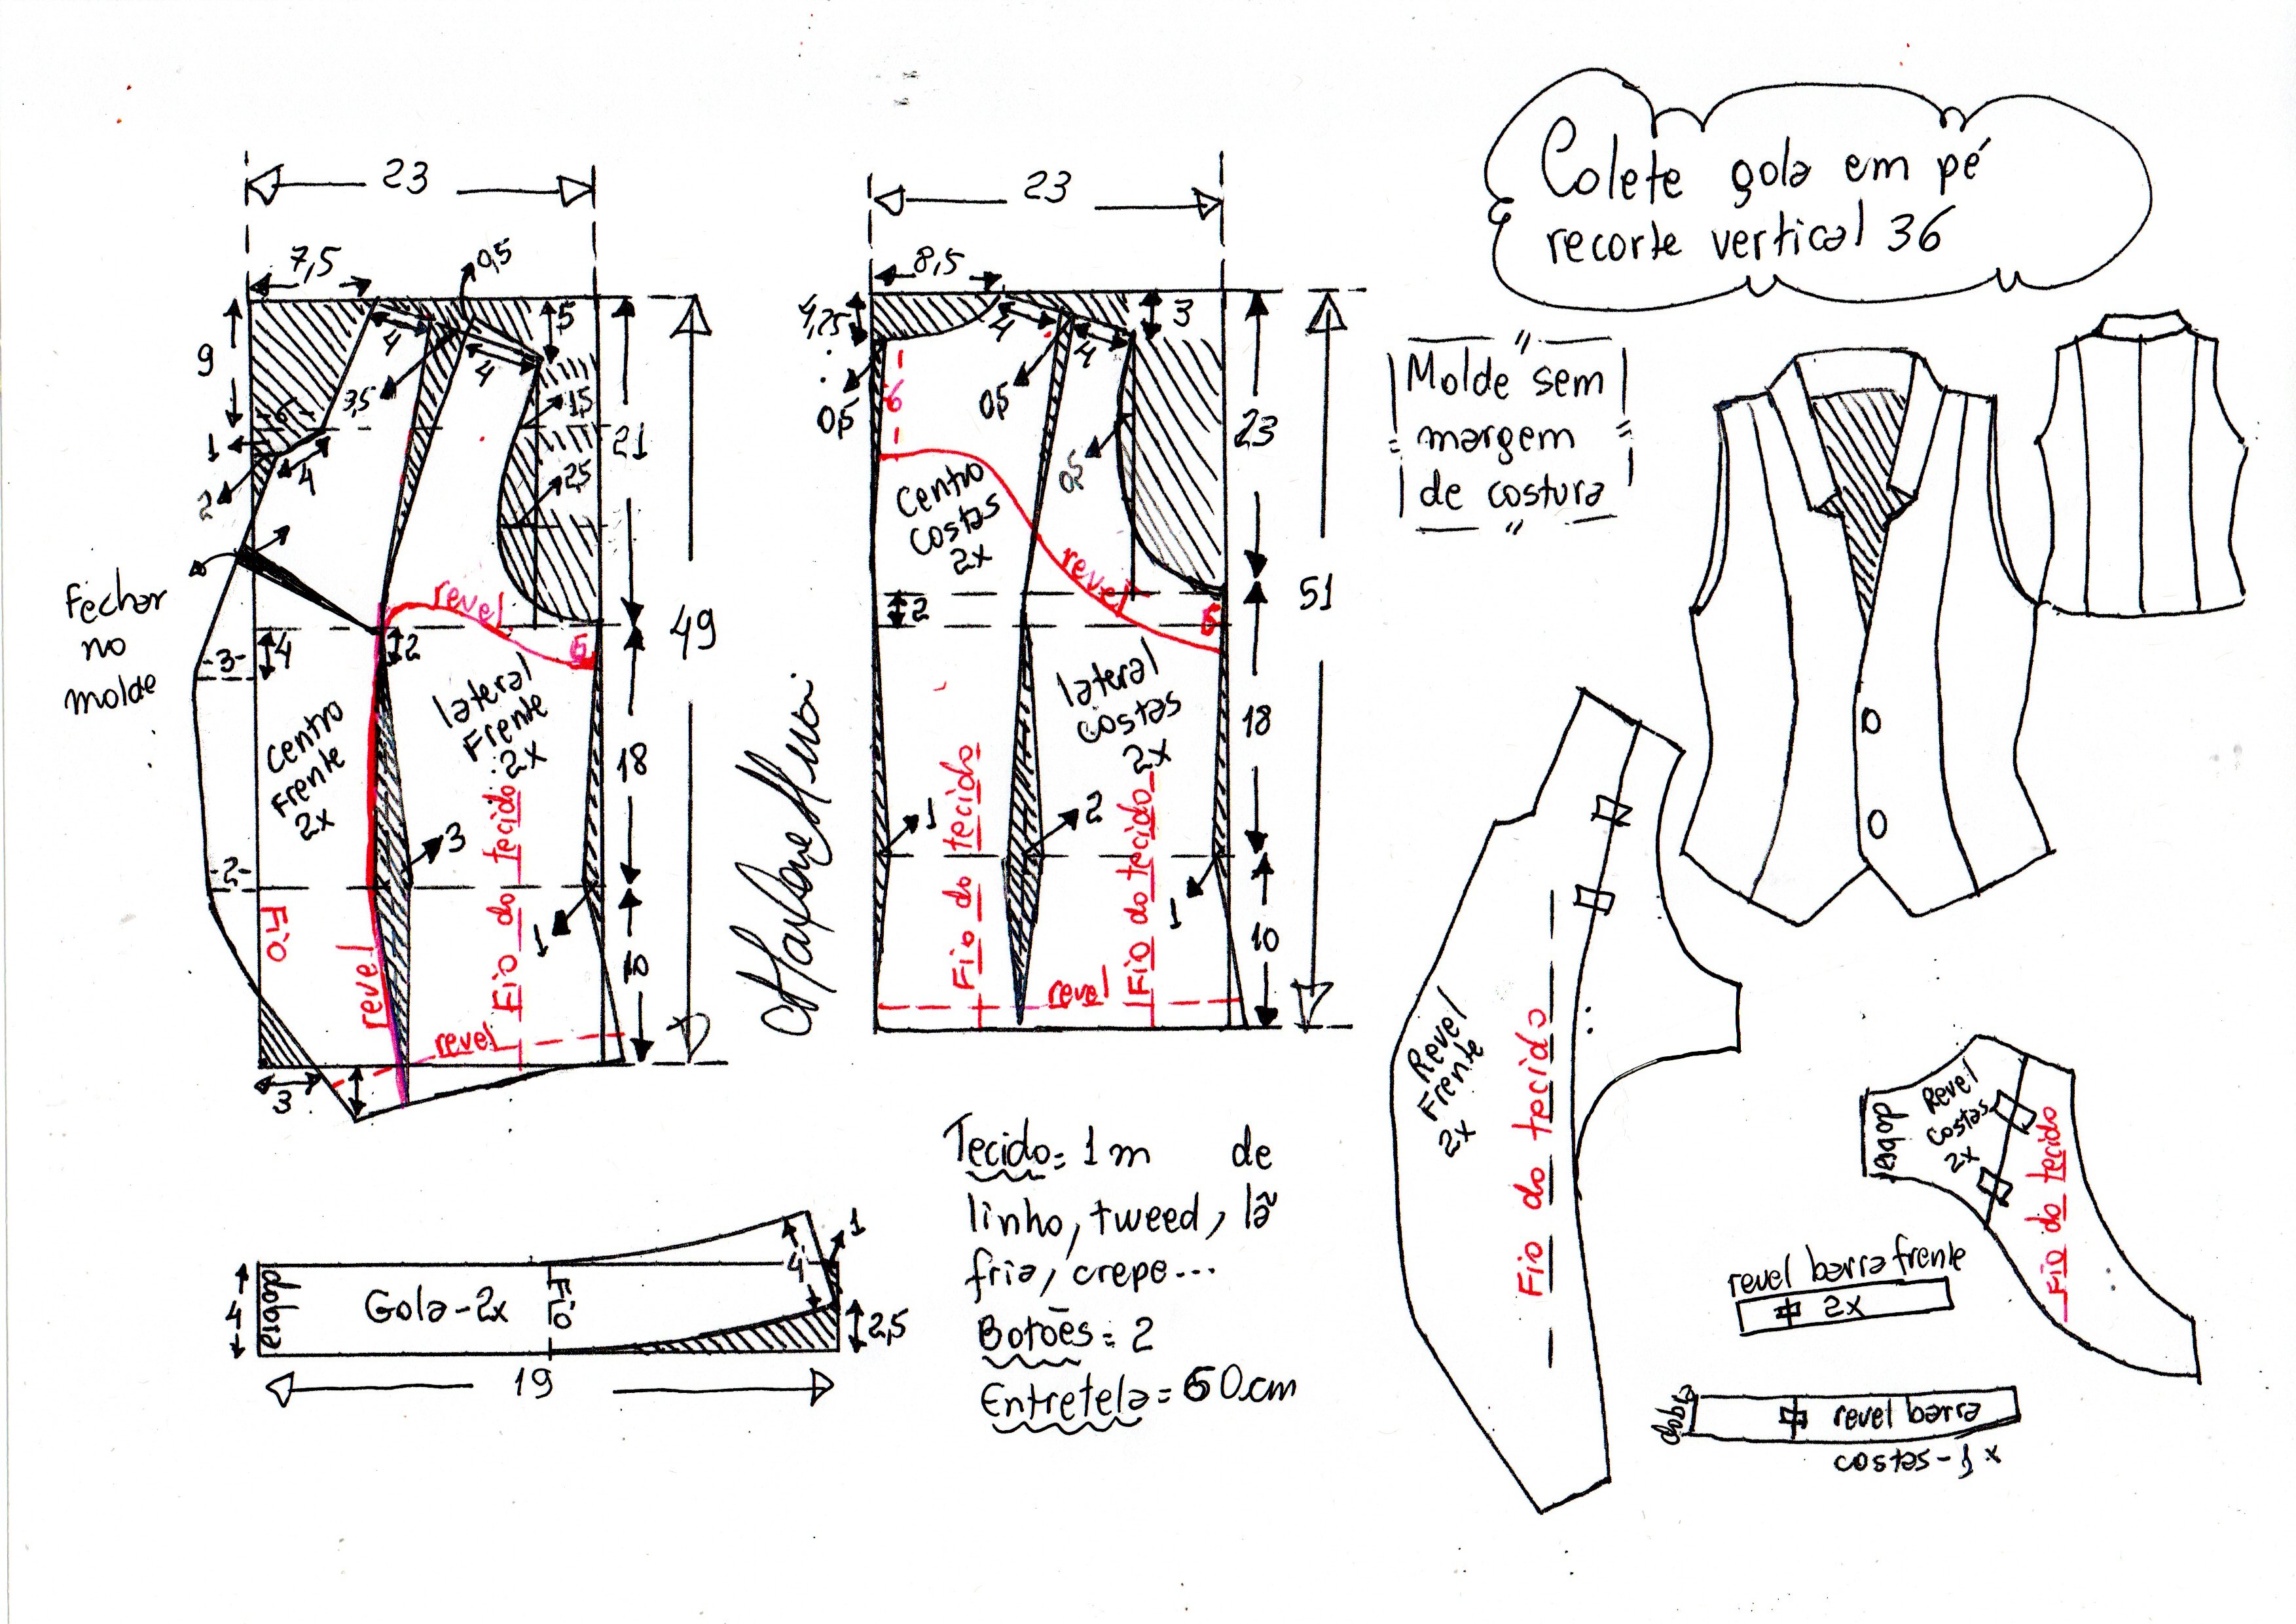 Colete gola em pé
recorte vertical 36
Molde sem
margem
de costura
23
7,5
0,5
9
4
3,5
4
5
1,5
21
6
1
4
2
2,5
Fechar
no
molde
revel
6
49
4
2
-3-
Centro
Frente
2x
lateral
Frente
2x
18
3
-2-
Fio
revel
Fio do tecido
1
10
revel
3
23
8,5
4,25
4
4
3
0,5
6
0,5
0,5
23
Centro
Costas
2x
revel
2
6
51
lateral
costas
2x
18
1
2
Fio do tecido
Fio do tecido
1
10
revel
dobra
4
Gola-2x
Fio
4
1
2,5
19
Tecido= 1m de
linho, tweed, lã
fria, crepe...
Botões= 2
Entretela= 60cm
Revel
Frente
2x
Fio do tecido
dobra
Revel
costas
2x
Fio do tecido
revel barra frente
2x
dobra
revel barra
costas-1x